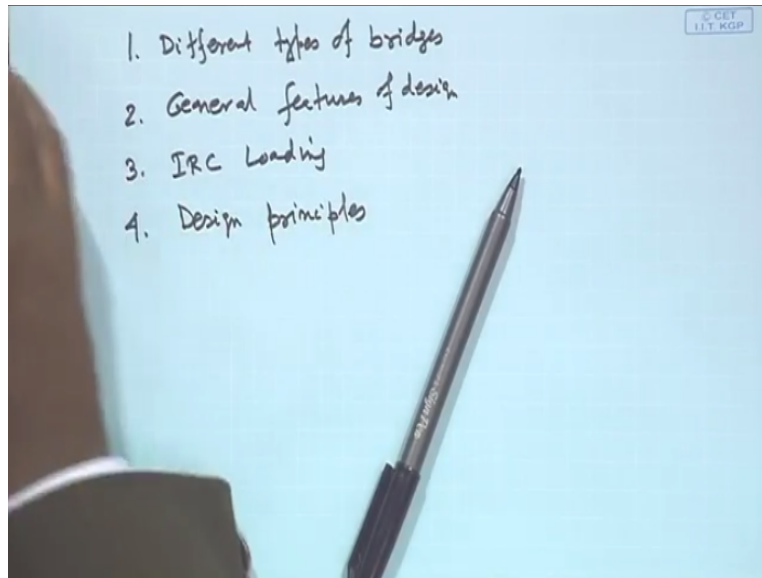 © CET
I.I.T. KGP
1. Different types of bridges
2. General features of design
3. IRC Loading
4. Design principles